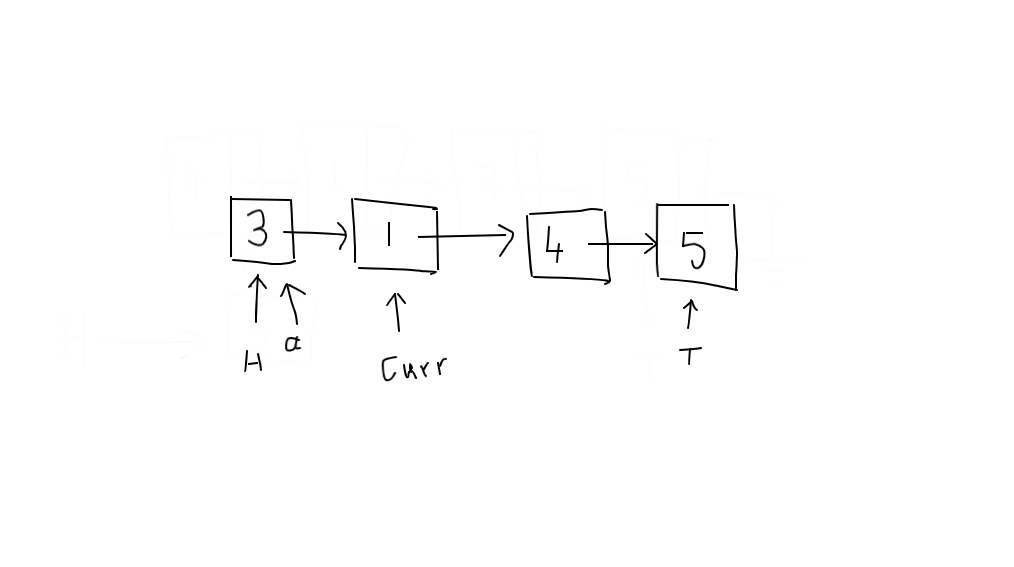 3 1 4 5
H a Curr T